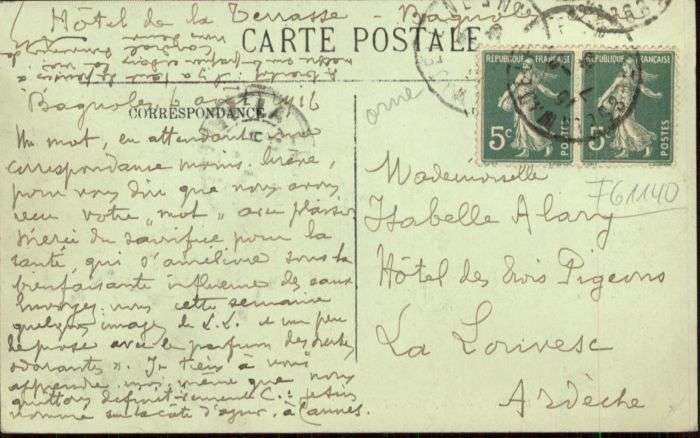 Hôtel de la Terrasse - Bagnoles
CARTE POSTALE
CORRESPONDANCE
Bagnoles, 6 1916
orne
Un mot, en attendant une
correspondance moins brève,
pour vous dire que nous avons
reçu votre "mot" avec plaisir
Merci du sacrifice pour la
santé, qui s'améliore sous la
bienfaisante influence des eaux
Envoyez-nous cette semaine
quelques images de L.L. et un peu
de prose avec le parfum des herbes
odorantes". Je tiens à vous
apprendre moi-même que nous
quittons définitivement C.: je suis
nommé sur la côte d'azur, à Cannes.
RÉPUBLIQUE FRANÇAISE
5c
POSTES
RÉPUBLIQUE FRANÇAISE
5c
POSTES
Mademoiselle
761140
Isabelle Alary
Hôtel des Trois Pigeons
La Louvesc
Ardèche